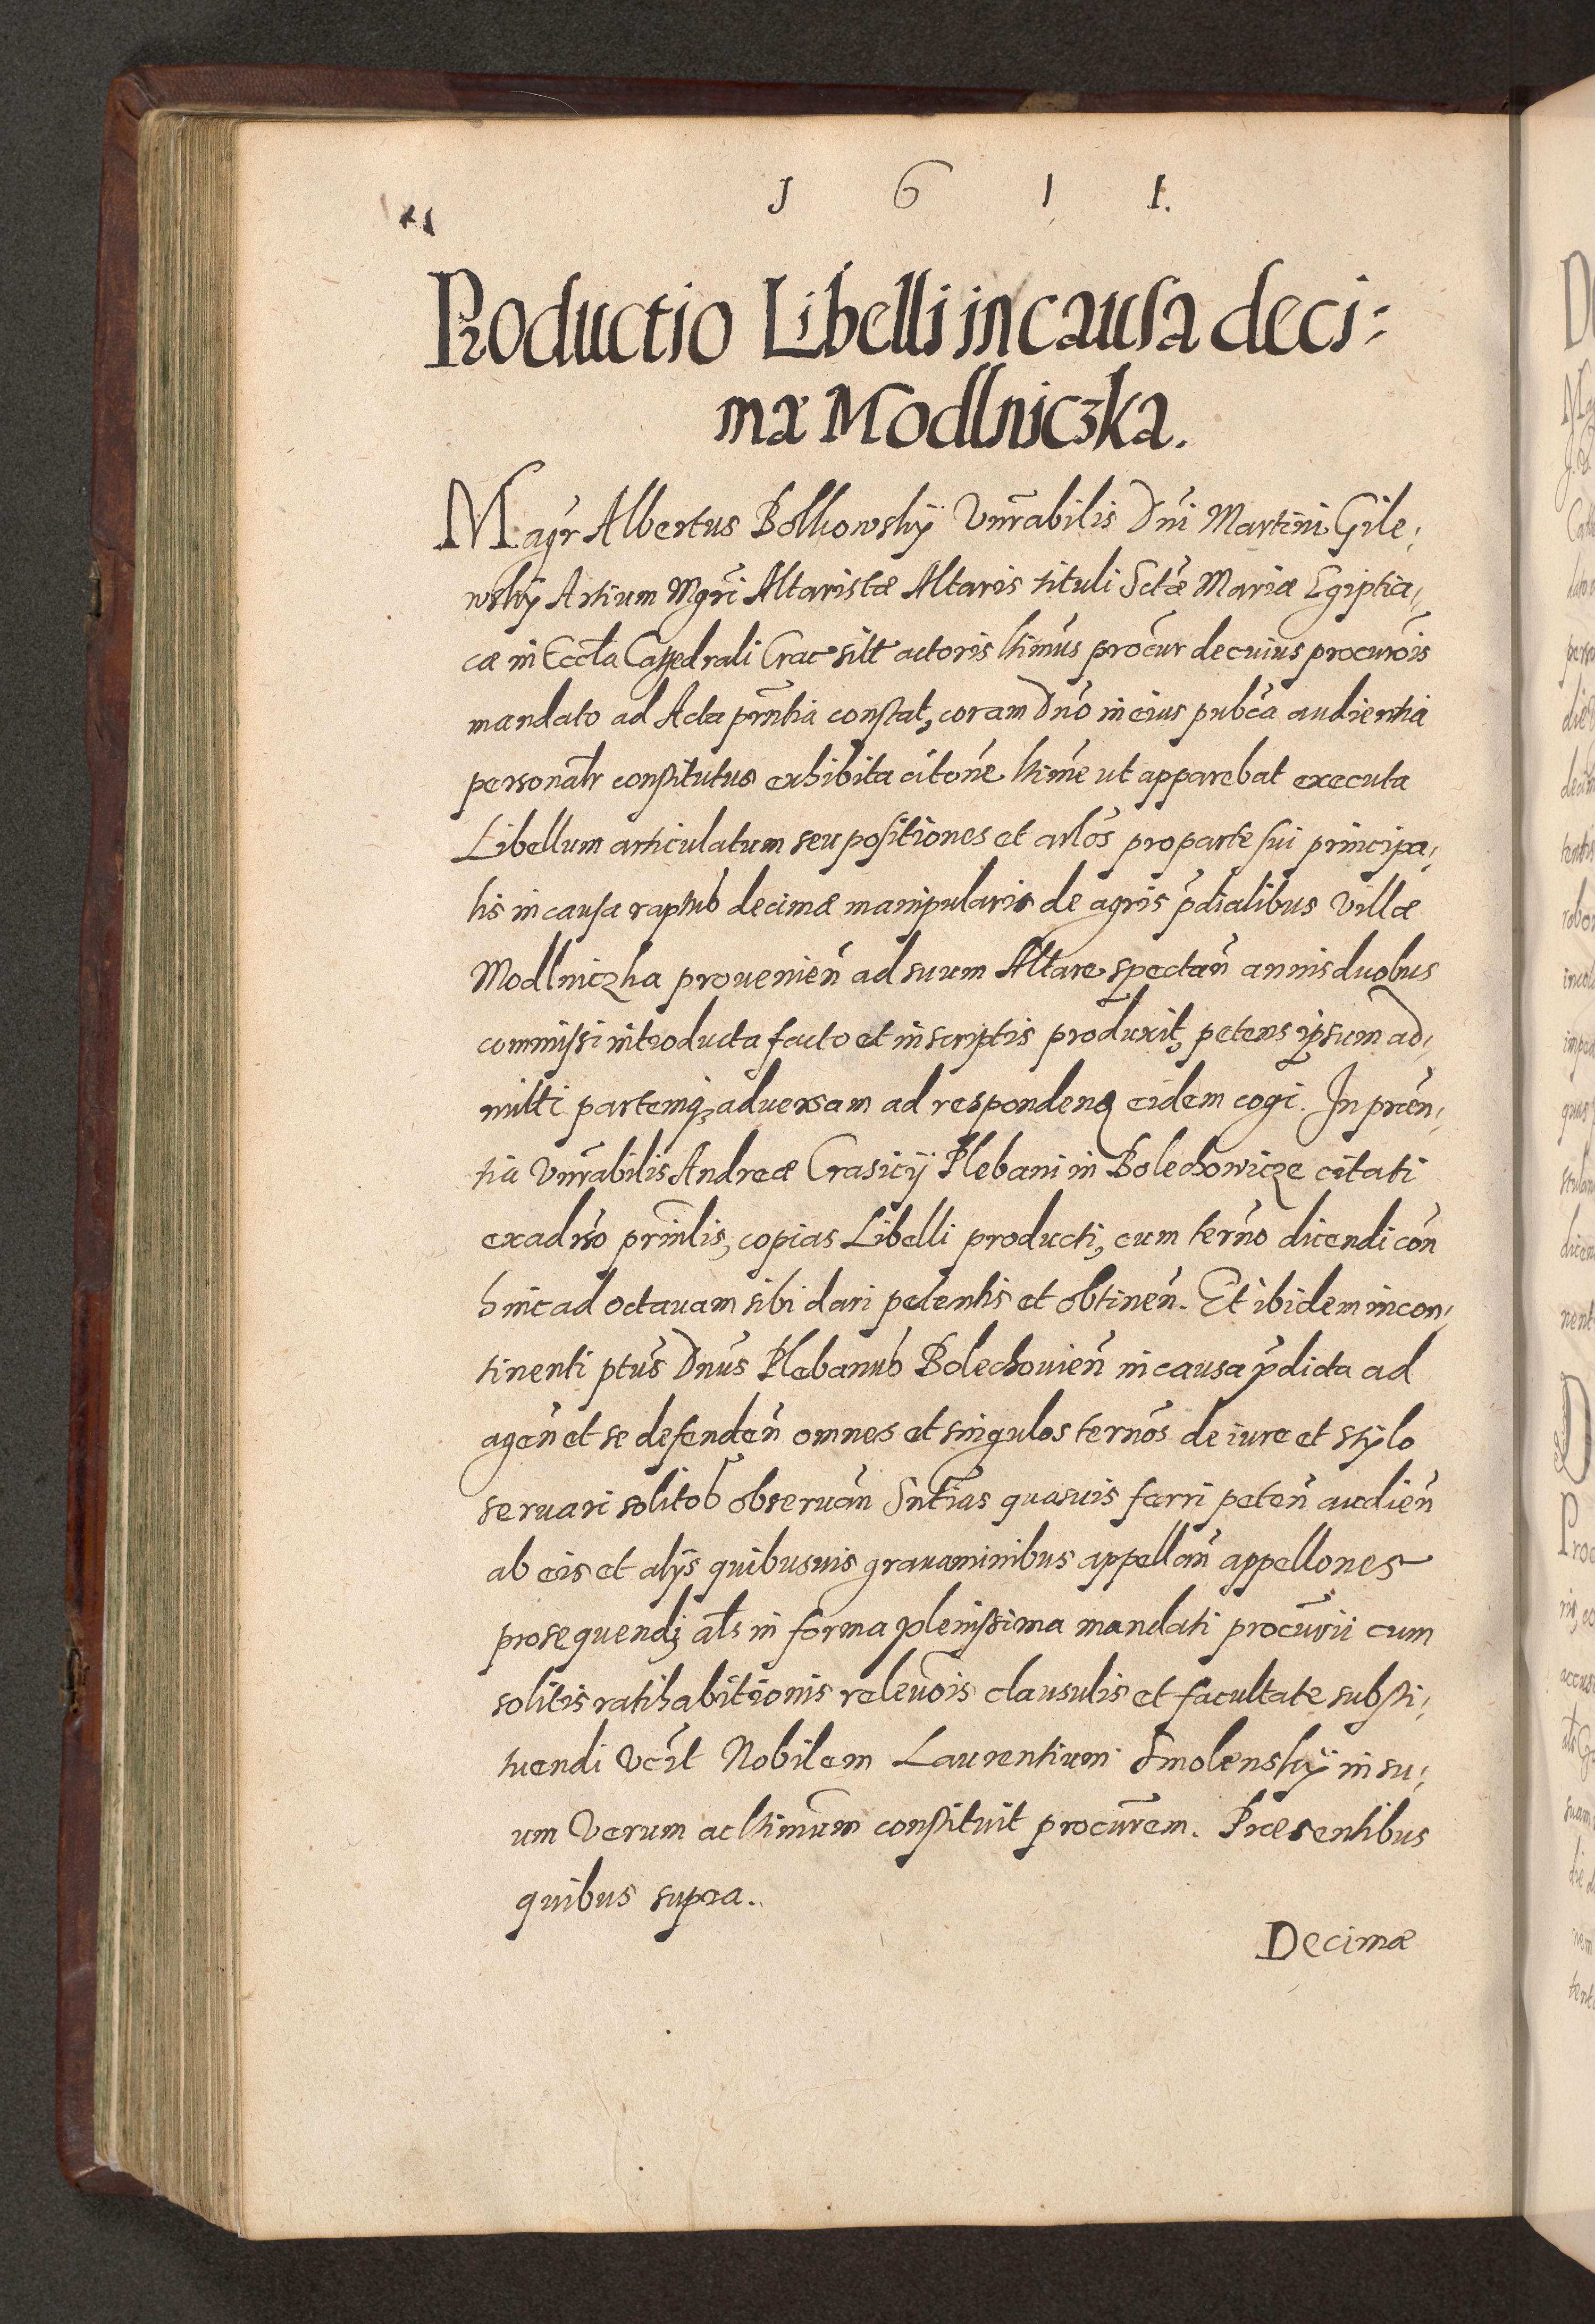 1 6 1 1.
Productio Libelli in causa deci:
mæ Modlniczka.
Magr Albertus Bolkowskÿ Vnrabilis Dni Martini Gile:
wskÿ Artium Mgri Altaristæ Altaris tituli Sctæ Mariæ Egiptia:
cæ in Eccla Cathedrali Crac silt actoris ltimus procur de cuius procurois
mandato ad Acta prntia constat, coram Dno in eius pubca audientia
personalr constitutus exhibita citone ltime ut apparebat executa
Libellum articulatum seu positiones et arlos pro parte sui principa:
lis in causa raptus decimæ manipularis de agris pdialibus villæ
Modlniczka prouenien ad suum Altare spectan annis duobus
commissi introducta facto et in scriptis produxit, petens ipsum ad:
mitti partemq, aduersam ad respondend eidem cogi. In præn:
tia Vnrabilis Andreæ Crasicÿ Plebani in Bolechowicze citati
ex aduso prinlis, copias Libelli producti, cum termo dicendi con
hinc ad octauam sibi dari petentis et obtinen. Et ibidem incon:
tinenti ptus Dnus Plebanus Bolechouien in causa pdicta ad
agen et se defenden omnes et singulos termos de iure et stylo
seruari solitos obseruan Sntias quasuis ferri peten audien
ab eis et alÿs quibusuis grauaminibus appellan appellones
prosequendj als in forma plenissima mandati procurii cum
solitis ratihabitionis releuois clausulis et facultate substi:
tuendi vcilt Nobilem Laurentium Smolenskÿ in su:
um verum ac ltimum constituit procurem. Præsentibus
quibus supra.
Decimæ